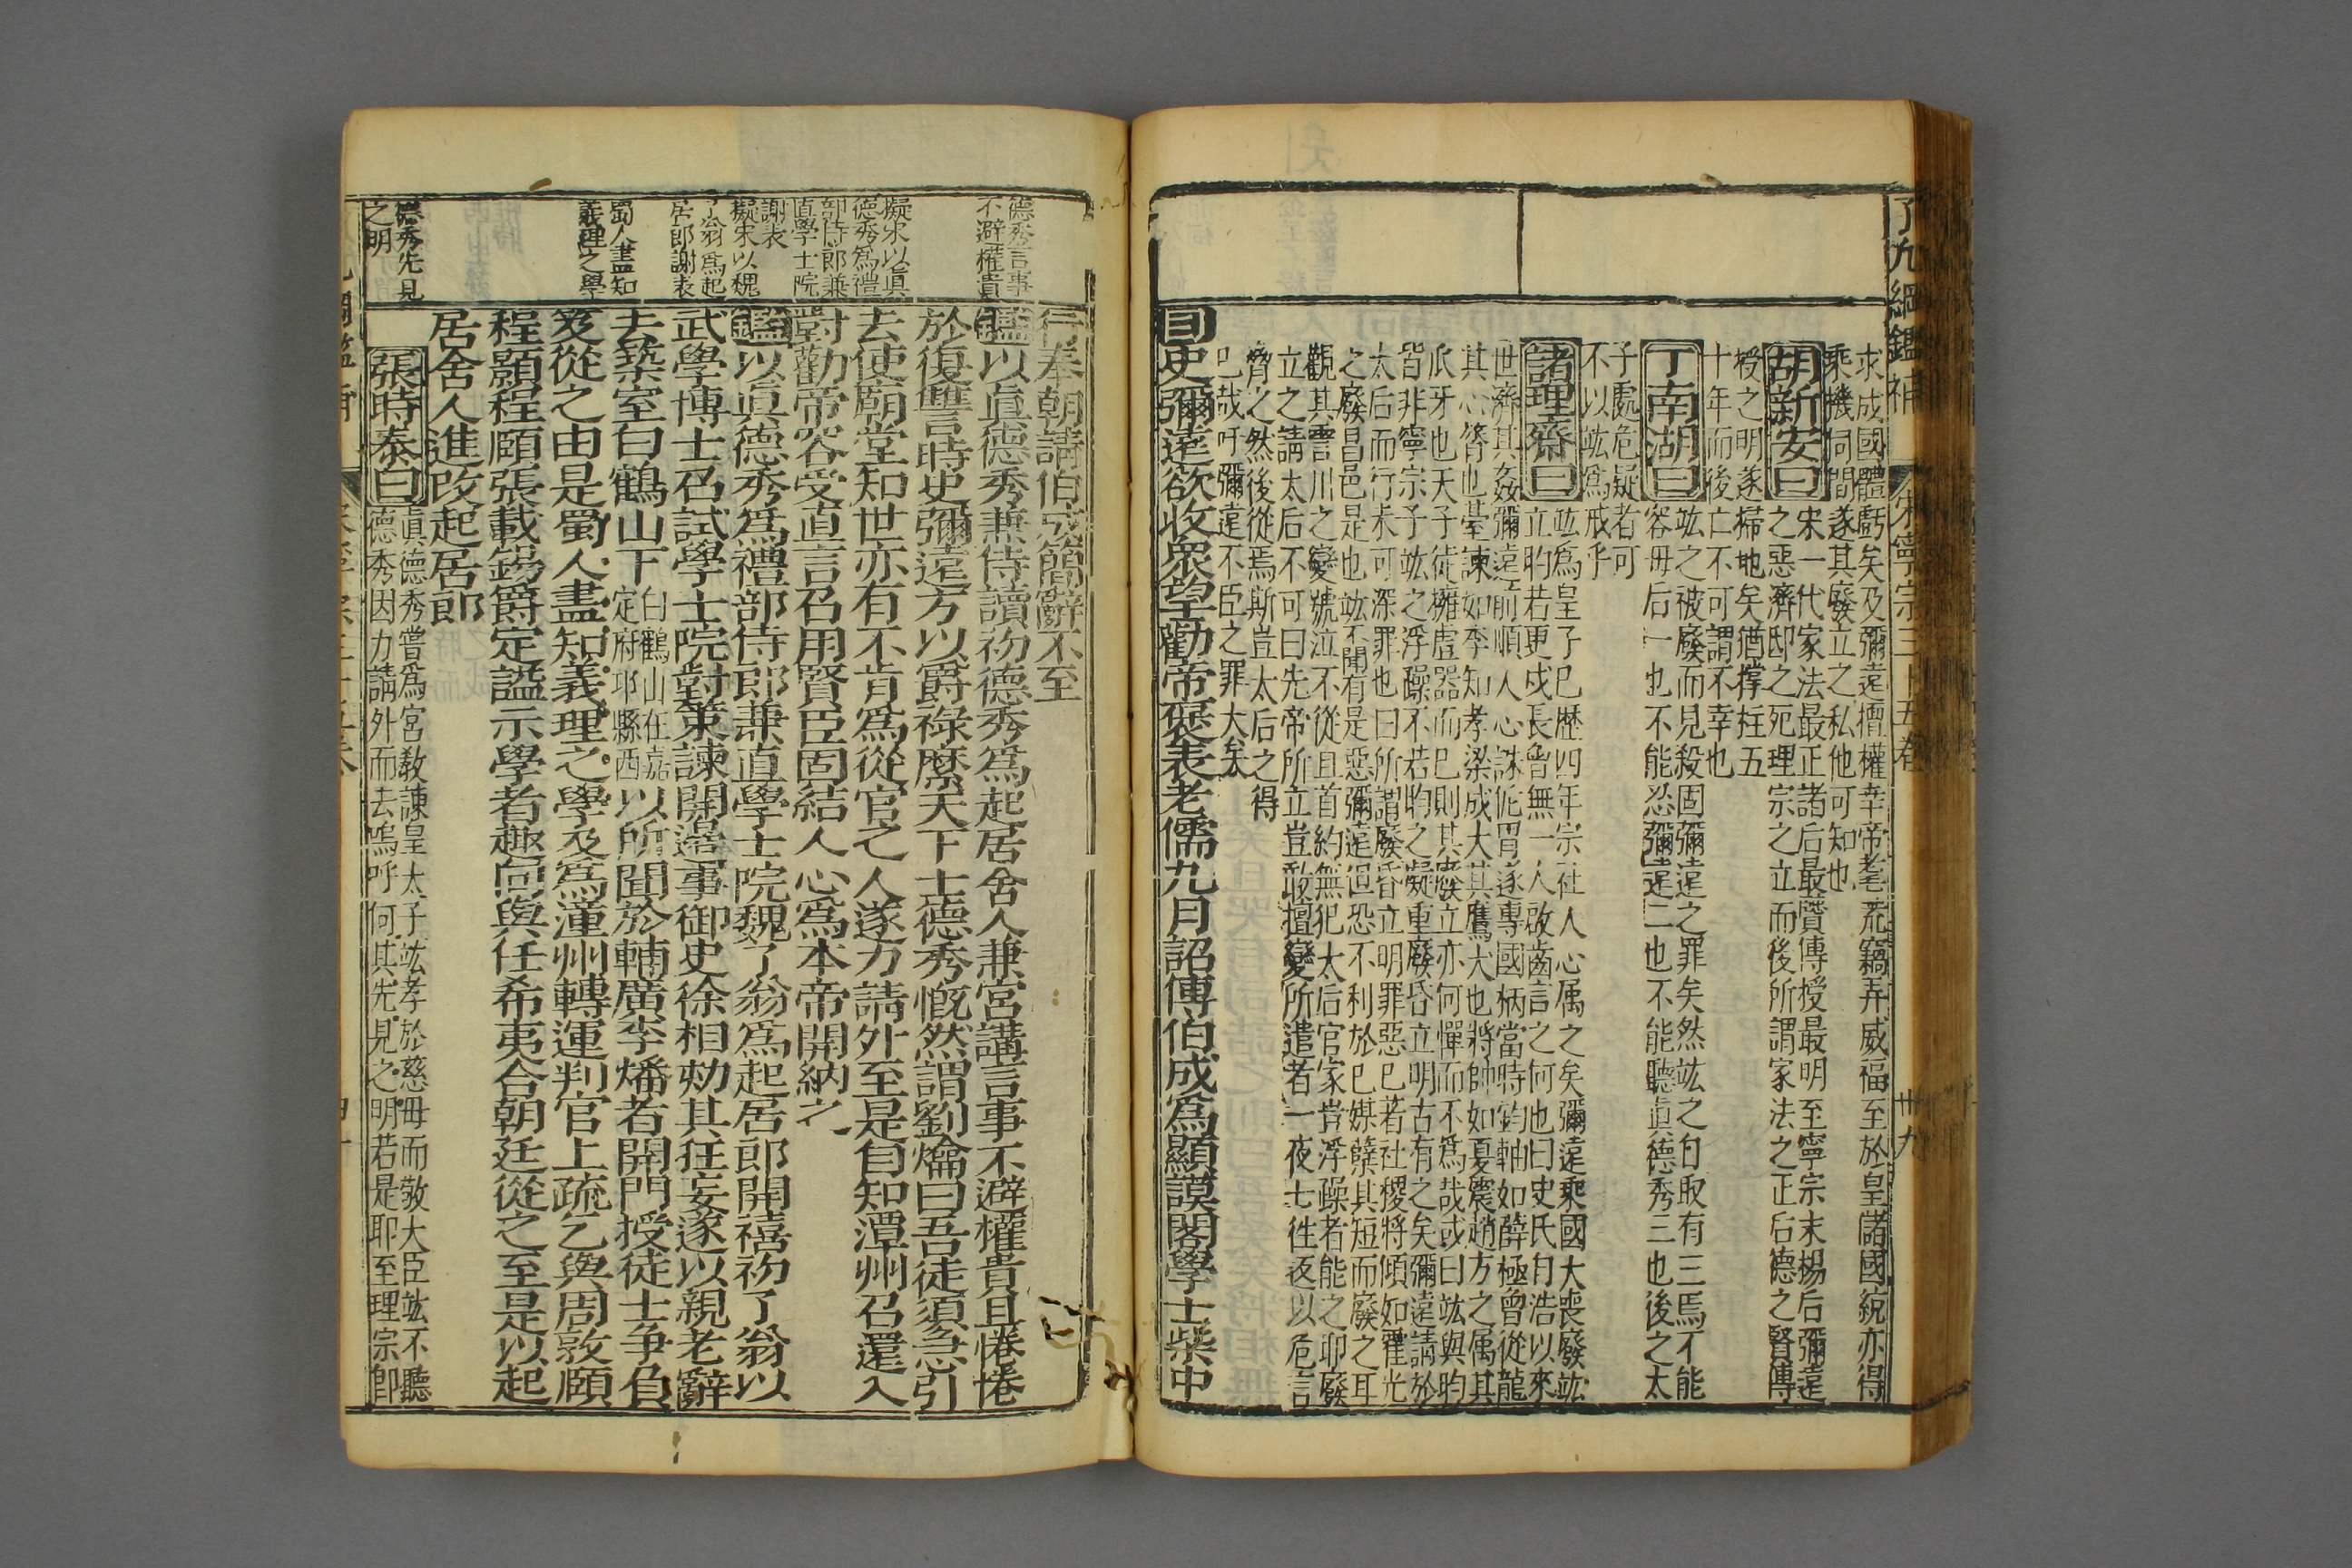 了凡綱鑑補
宋寧宗三十五卷
卅九
求成國體虧矣及彌遠擅權幸帝耄荒竊弄威福至於皇儲國統亦得
乘機伺間遂其廢立之私他可知也
胡新安曰
宋一代家法最正諸后最賢傳授最明至寧宗末楊后彌遠
之惡濟邸之死理宗之立而後所謂家法之正后德之賢傳
授之明遂掃地矣猶撐柱五
十年而後亡不可謂不幸也
丁南湖曰
竑之被廢而見殺固彌遠之罪矣然竑之自取有三焉不能
容毋后一也不能忍彌遠二也不能聽眞德秀三也後之太
子處危疑者可
不以竑爲戒乎
諸理齋曰
竑爲皇子已歷四年宗社人心属之矣彌遠乘國大喪廢竑
立昀若更戍長曾無一人啟齒言之何也曰史氏自浩以來
世濟其姦彌遠前順人心誅侂胄遂專國柄當時鈞軸如薛極曾從龍
其心膂也臺諫如李知孝梁成大其鷹犬也將帥如夏震趙方之属其
爪牙也天子徒擁虛器而已則其廢立亦何憚而不爲哉或曰竑與昀
皆非寧宗子竑之浮躁不若昀之凝重廢昏立明古有之矣彌遠請於
太后而行未可深罪也曰所謂廢昏立明罪惡已著社稷將傾如霍光
之廢昌邑是也竑不聞有是惡彌遠但恐不利於已媒糵其短而廢之耳
觀其霅川之變號泣不從且首約無犯太后官家肯浮躁者能之耶廢
立之請太后不可曰先帝所立豈敢擅變所遣者一夜七往返以危言
脅之然後從焉斯豈太后之得
已哉吁彌遠不臣之罪大矣
目史彌遠欲收衆望勸帝褒表老儒九月詔傅伯成爲顯謨閣學士柴中
行奉朝請伯成簡辭不至
德秀言事
不避權貴
鑑以眞德秀兼侍讀初德秀爲起居舍人兼宮講言事不避權貴且惓惓
於復讐時史彌遠方以爵祿縻天下士德秀慨然謂劉爚曰吾徒須急引
去使廟堂知世亦有不肯爲從官之人遂力請外至是自知潭州召還入
對勸帝容受直言召用賢臣固結人心爲本帝開納之
擬宋以眞
德秀爲禮
部侍郎兼
直學士院
謝表
擬宋以魏
了翁爲起
居郎謝表
鑑以眞德秀爲禮部侍郎兼直學士院魏了翁爲起居郎開禧初了翁以
武學博士召試學士院對策諫開邊事御史徐相劾其狂妄遂以親老辭
去築室白鶴山下
白鶴山在嘉
定府邛縣西
以所聞於輔廣李燔者開門授徒士爭負
蜀人盡知
義理之學
笈從之由是蜀人盡知義理之學及爲潼州轉運判官上疏乞與周敦頤
程顥程頤張載錫爵定諡示學者趣向與任希夷合朝廷從之至是以起
居舍人進改起居郎
德秀先見
之明
張時泰曰
眞德秀嘗爲宮教諫皇太子竑孝於慈毋而敬大臣竑不聽
德秀因力請外而去嗚呼何其先見之明若是耶至理宗卽